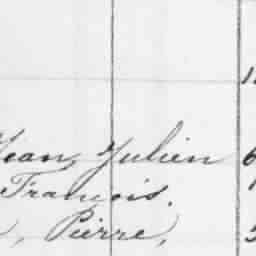 Jean Julien 6
François.
, Pierre,